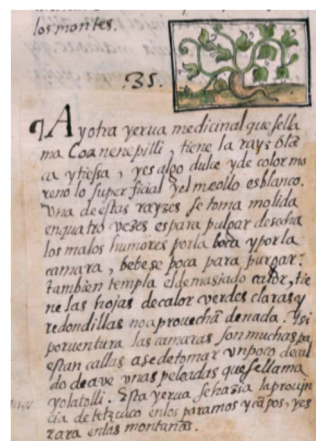 los montes.
.35.
¶ Ay otra yerua medicinal que se lla
ma Coanenepilli, tiene la rayz blã
ca y tiessa, y es algo dulce y de color mo
reno lo superficial y el meollo es blanco.
Una de estas rayzes se toma molida
en quatro vezes es para purgar desecha
los malos humores por la boca y por la
camara, bebese poca para purgar:
tambien templa el demasiado calor, tie
ne las hojas de color verdes claras y
redondillas no aprouechã de nada. Y si
por uentura las camaras son muchas pa
estancallas a se de tomar vn poco de cal
do de ave o vnas peleadas que se llama
yolatolli. Esta yerua se haze en la prouin
cia de tetzcuco en los paramos y cãpos, y es
rara en las montañas.